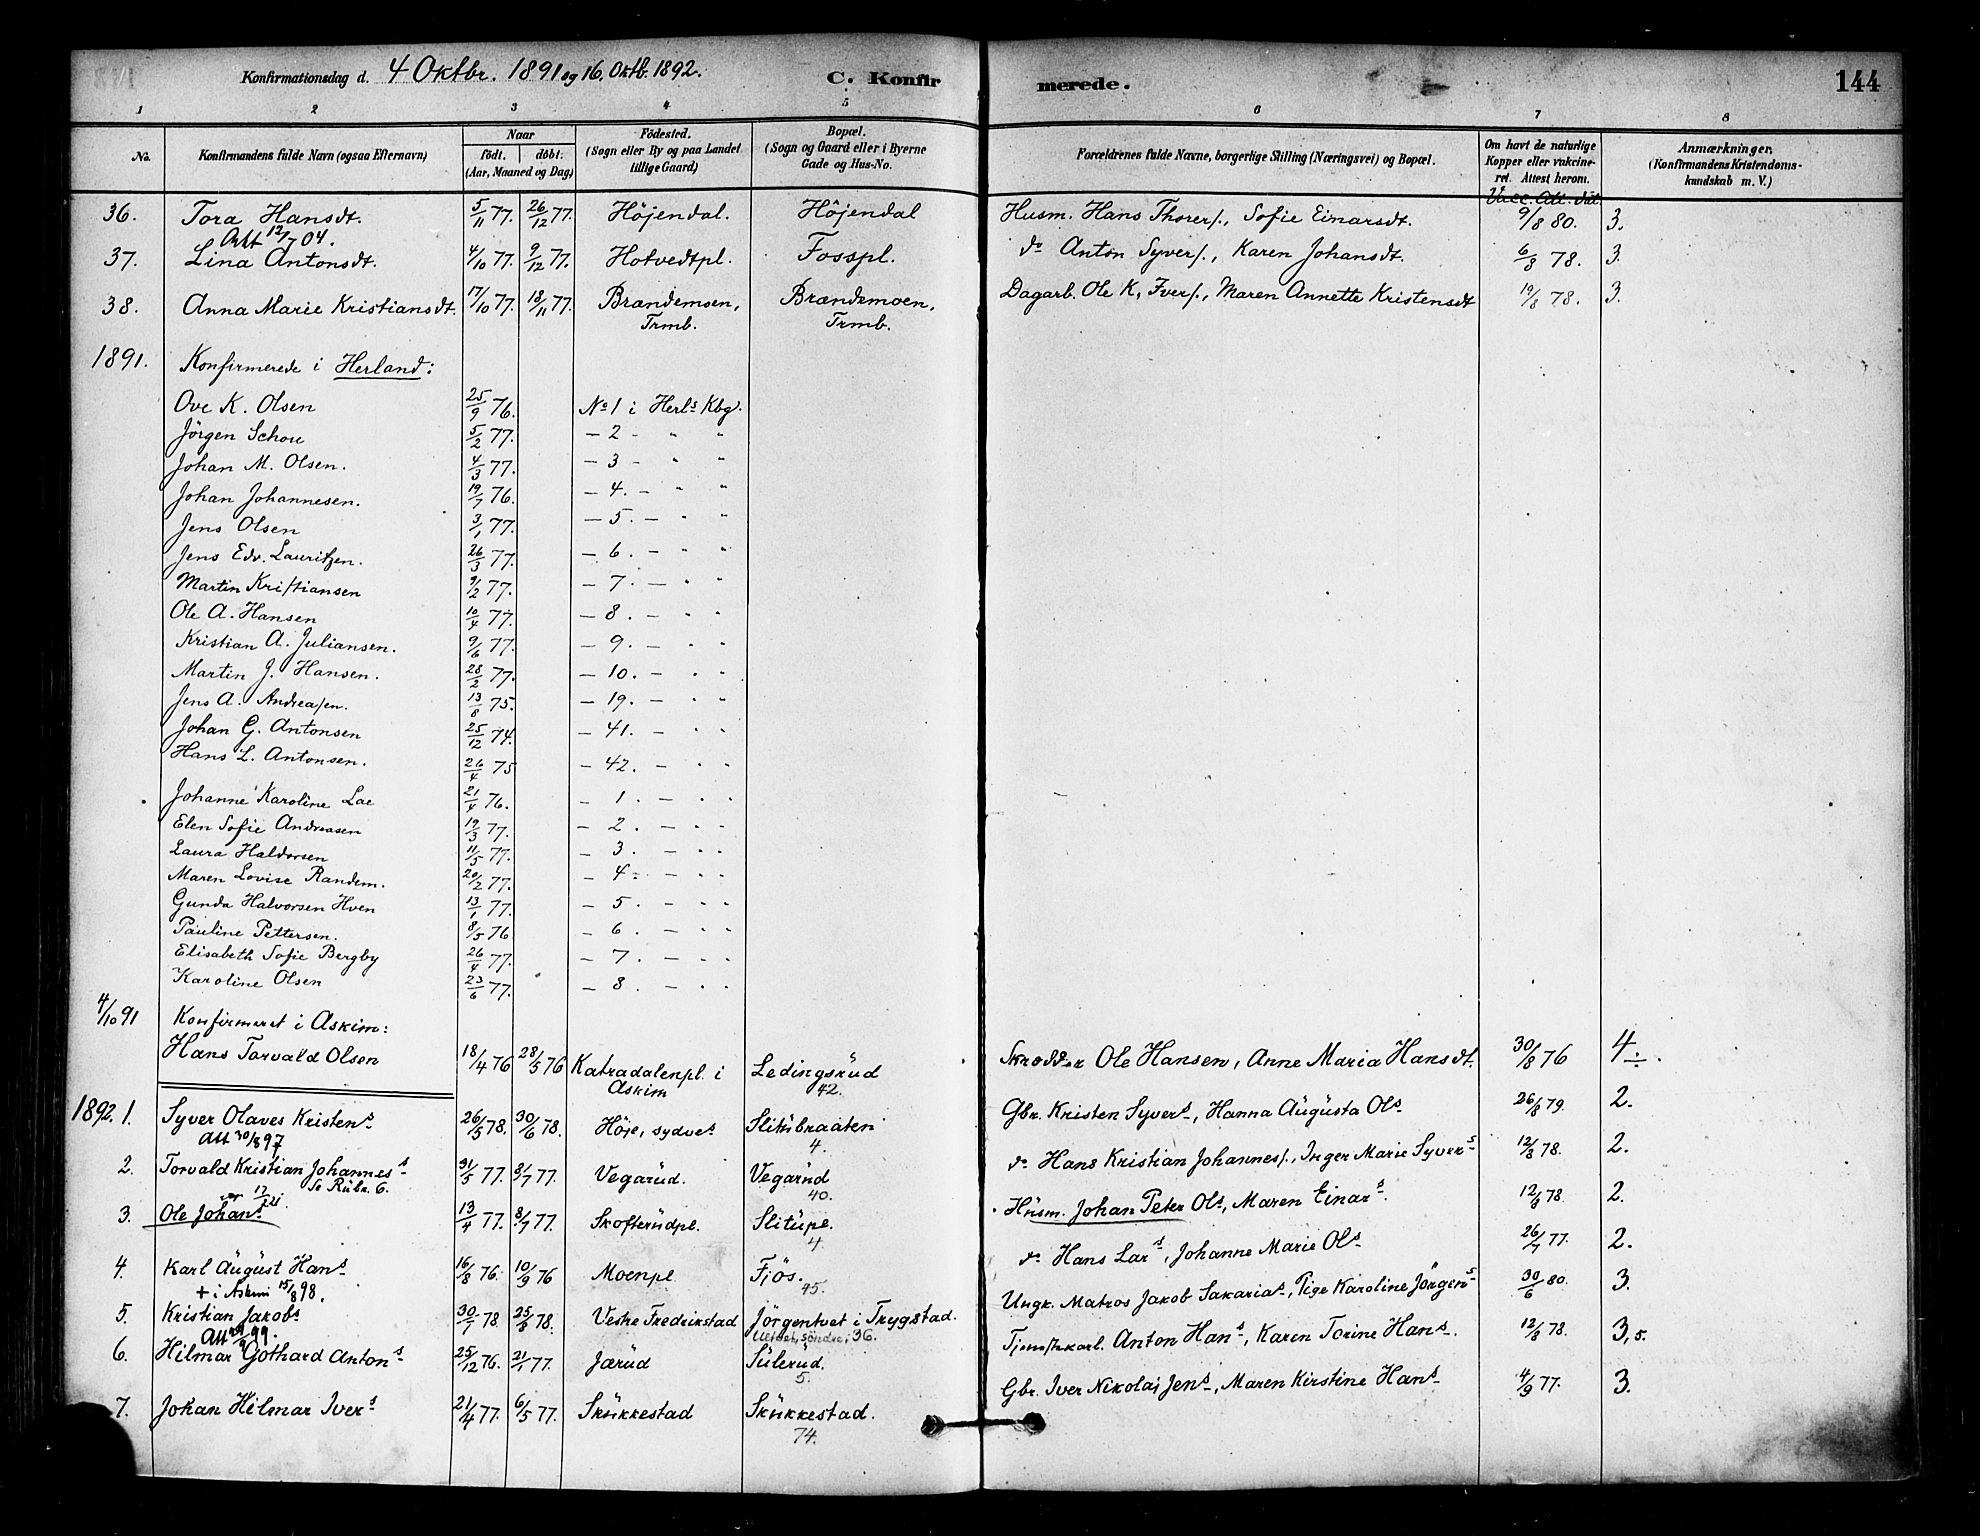 Konfirmationsdag d. 4 Oktbr. 1891 og 16, Oktb. 1892. C. Konfirmerede. 144
1 2 3 4 5 6 7 8
No. Konfirmandens fulde Navn (ogsaa Efternavn) Naar födt. döbt. (Aar, Maaned og Dag) Födested. (Sogn eller By og paa Landet tillige Gaard) Bopæl. (Sogn og Gaard eller i Byerne Gade og Hus-No. Forældrenes fulde Navne, borgerlige Stilling (Næringsvei) og Bopæl. Om havt de naturlige Kopper eller vakcineret. Attest herom. Anmærkninger. (Konfirmandens Kristendomskundskab m. V.)
Vacc. Att. dat.
36. Tora Hansdt. 5/11 77. 26/12 77. Höjendal. Höjendal Husm. Hans Thorers., Sofie Einarsdt. 9/8 80. 3.
Att 12/7 04.
37. Lina Antonsdt. 4/10 77. 9/12 77. Hotvedtpl. Fosspl. do Anton Syvers., Karen Johansdt. 6/8 78. 3.
38. Anna Marie Kristiansdt. 17/10 77. 18/11 77. Brændemoen, Trmb. Brændemoen, Trmb. Dagarb. Ole K. Ivers., Maren Annette Kristensdt 19/8 78. 3.
1891. Konfirmerede i Herland:
Ove K. Olsen 25/9 76. No 1 i Herls Kbg.
Jörgen Schou 5/2 77. — 2 - " "
Johan M. Olsen. 4/3 77. — 3 - " "
Johan Johannesen. 19/7 76. — 4. — " "
Jens Olsen 3/1 77. — 5. — " "
Jens Edv. Lauritzen. 26/3 77. — 6. — " "
Martin Kristiansen 9/2 77. — 7. — " "
Ole A. Hansen 10/4 77. — 8. — " "
Kristian A. Juliansen. 9/6 77. — 9. — " "
Martin J. Hansen. 28/2 77. — 10. — " "
Jens A. Andreasen. 13/8 75. — 19. — " "
Johan G. Antonsen 25/12 74. — 41. — " "
Hans L. Antonsen. 26/4 75 — 42. — " "
Johanne Karoline Lae 21/4 76. — 1. — " "
Elen Sofie Andreasen 19/3 77. — 2. — " "
Laura Haldorsen 11/5 77. — 3. — " "
Maren Lovise Randem. 20/2 77. — 4. — " "
Gunda Halvorsen Hven 13/1 77. — 5. — " "
Pauline Pettersen. 8/5 76 — 6. — " "
Elisabeth Sofie Bergby 26/4 77. — 7. — " "
Karoline Olsen 23/6 77. — 8. — " "
4/10 91 Konfirmeret i Askim:
Hans Torvald Olsen 18/4 76 28/5 76 Katradalenpl. i Askim Ledingsrud 42. Skrædder Ole Hansen, Anne Maria Hansdt. 30/8 76 4÷.
1892. 1. Syver Olaves Kristens 26/5 78. 30/6 78. Höje, sydves Slitubraaten 4. Gbr. Kristen Syvers, Hanna Augusta Ols 26/8 79. 2.
Att 30/8 97
2. Torvald Kristian Johannes 31/5 77. 8/7 77. Vegarud. Vegarud 40. do Hans Kristian Johannes., Inger Marie Syvers 12/8 78. 2.
Se Rubr. 6.
3. Ole Johans 13/4 77. 8/7 77. Skofterudpl. Slitupl. 4. Husm. Johan Peter Ols, Maren Einars. 12/8 78. 2.
4. Karl August Hans 16/8 76. 10/9 76 Moenpl Fjös. 45. do Hans Lars, Johanne Marie Ols 26/7 77. 2.
+ i Askim 15/8 98.
5. Kristian Jakobs 30/7 78. 25/8 78. Vestre Fredrikstad Jörgentvet i Trygstad. Ungk. Matros Jakob Sakarias, Pige Karoline Jörgens 30/6 80. 3.
6. Hilmar Gothard Antons 25/12 76. 21/1 77. Jarud Sulerud. 5. Tjenestekarl. Anton Hans, Karen Torine Hans. 12/8 78. 3,5.
7. Johan Hilmar Ivers 21/4 77. 6/5 77. Skukkestad Skukkestad. 74. Gbr. Iver Nikolaj Jens, Maren Kirstine Hans 4/9 77. 3.